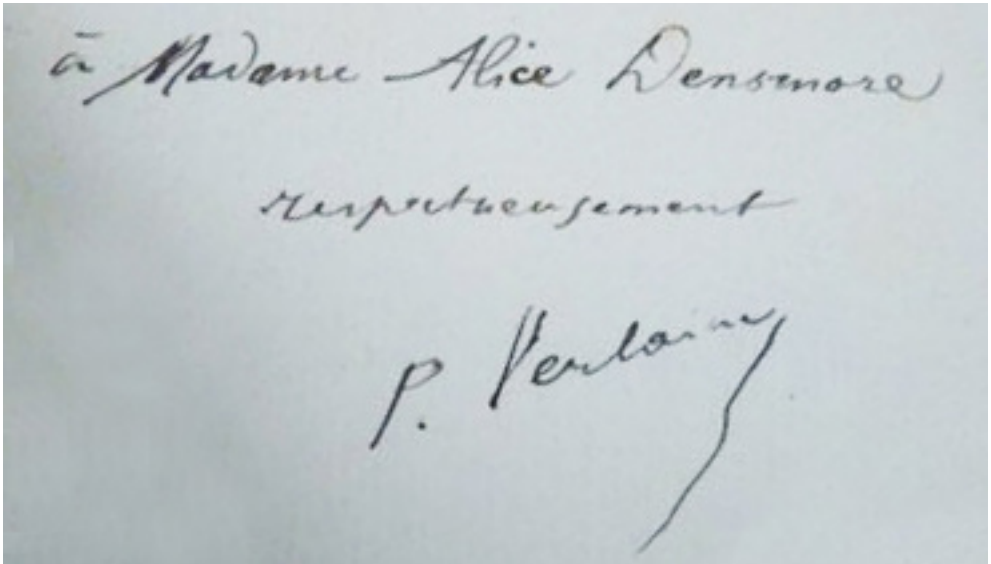 à Madame Alice Densmore
respectueusement
P. Verlaine